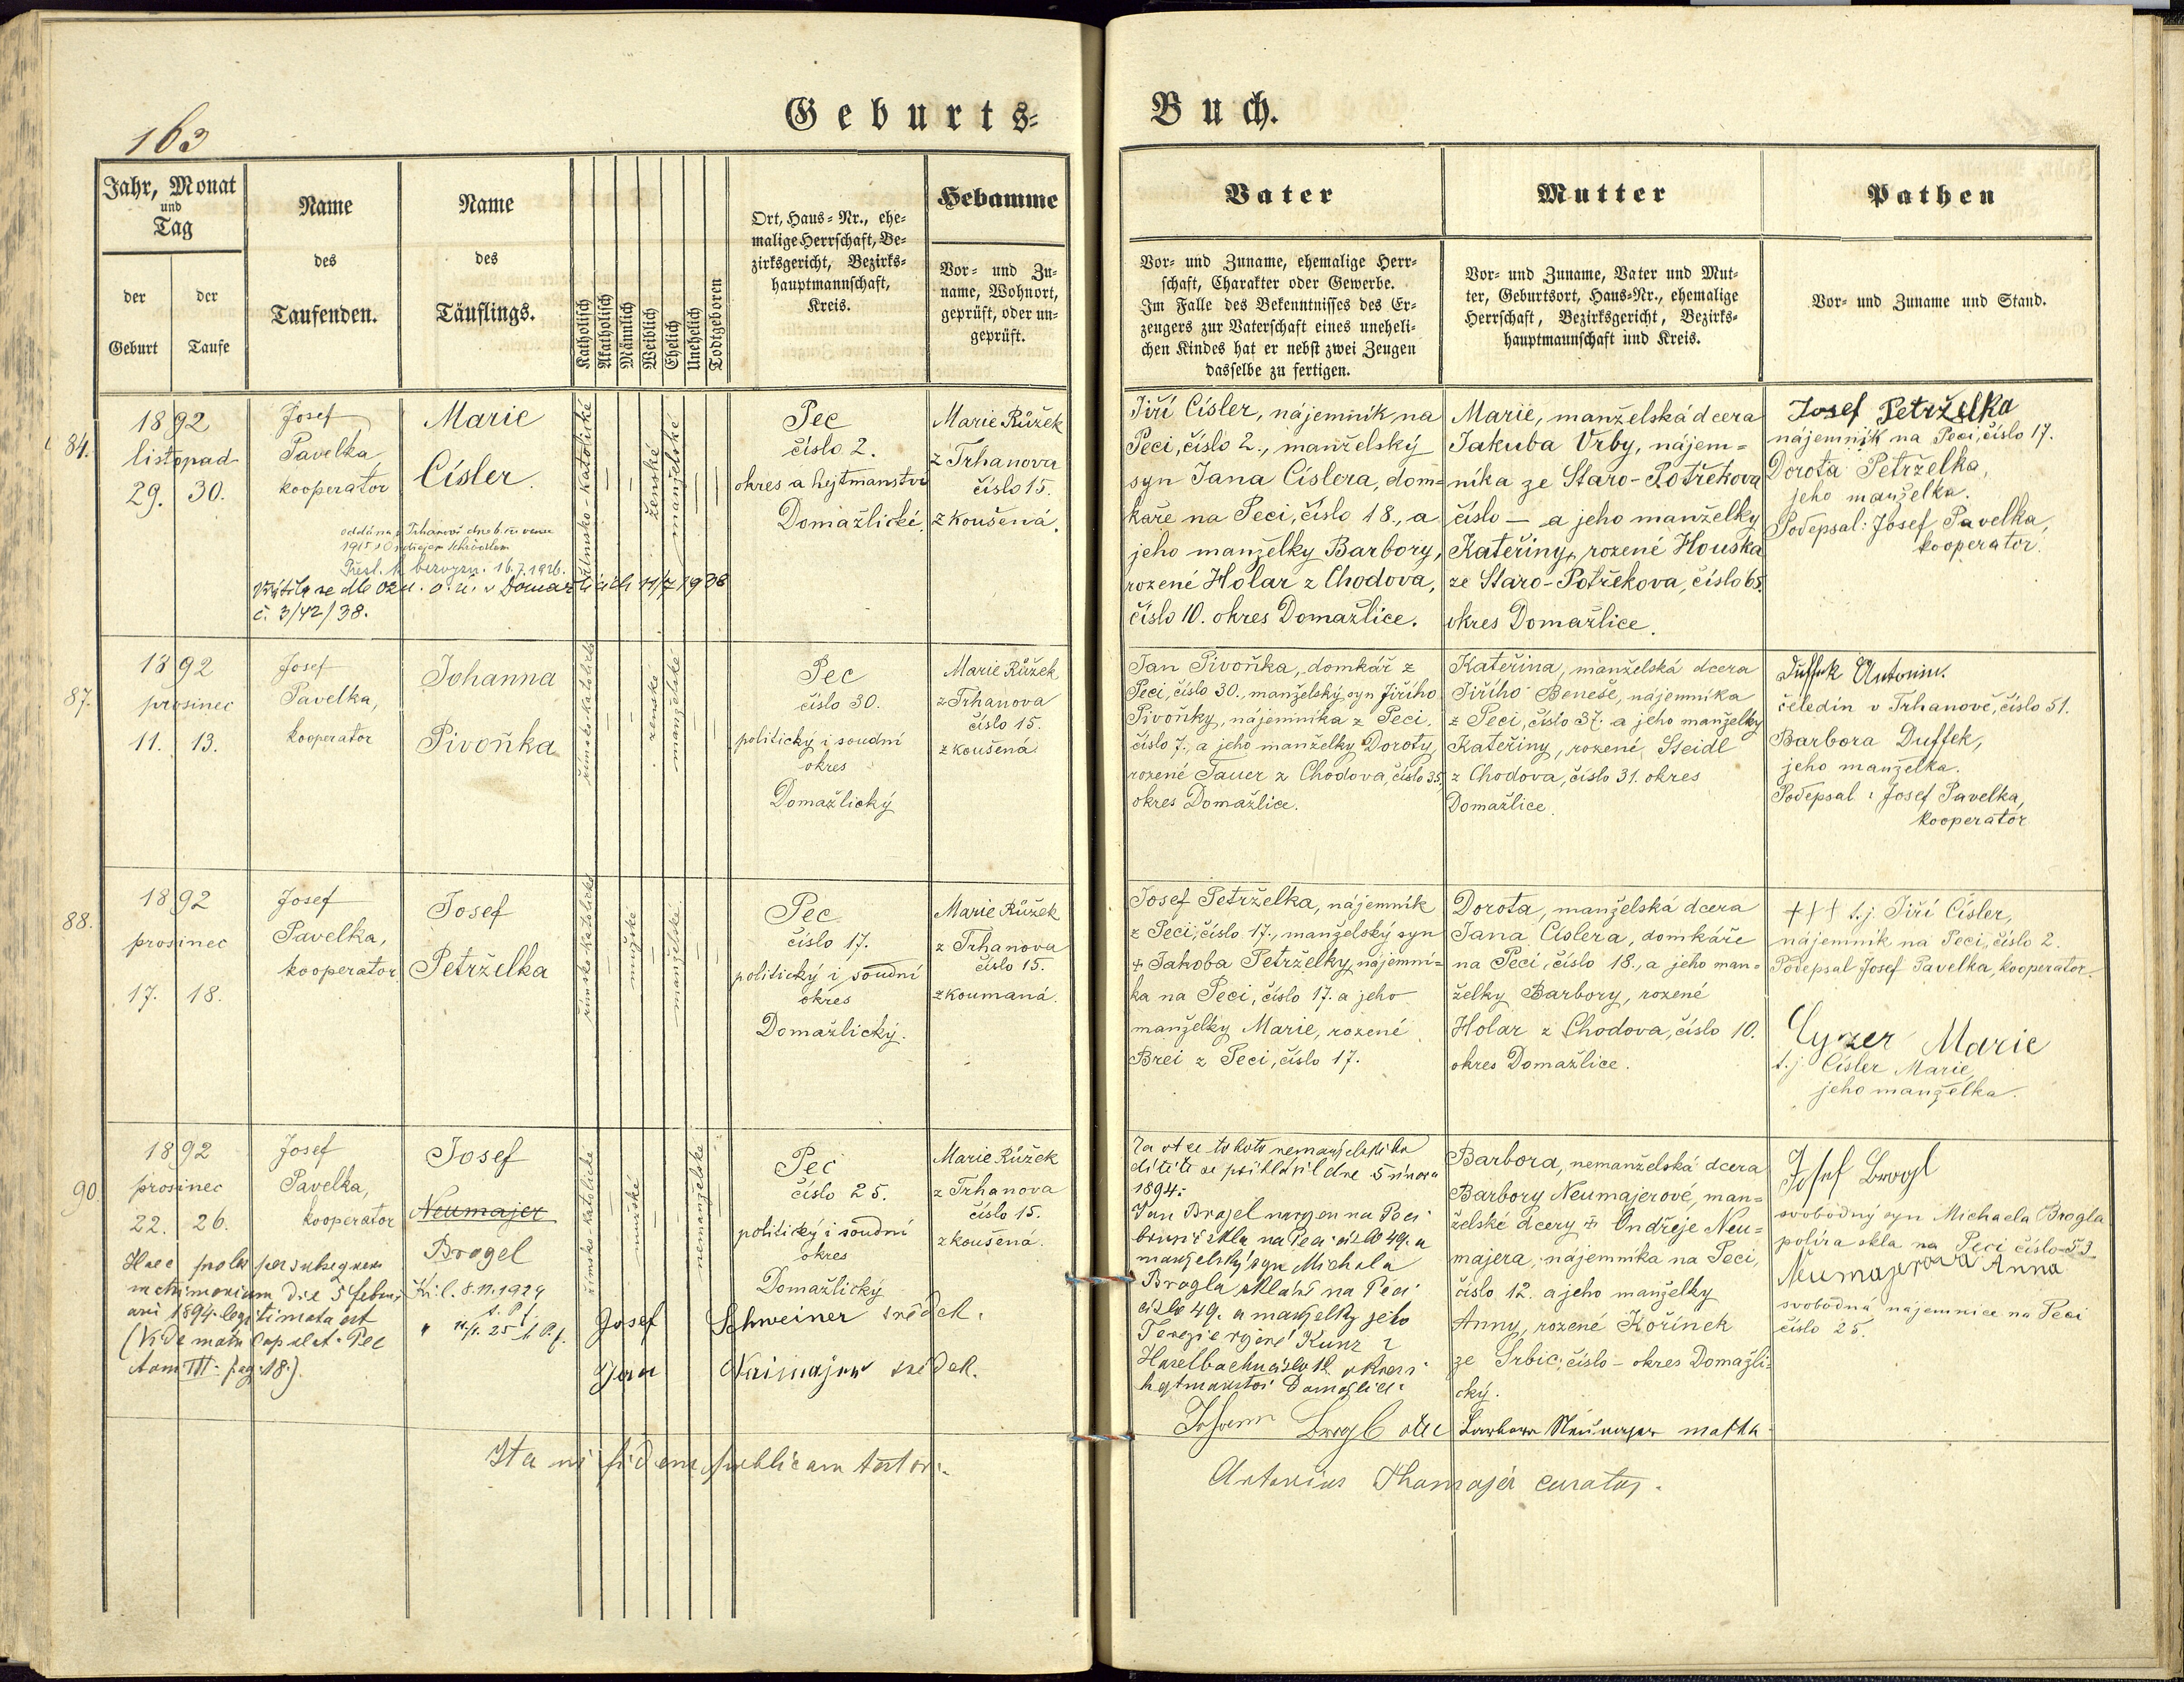 163
Geburts=
Buch.
Jahr, Monat
und
Tag
der
Geburt
der
Taufe
Name
des
Taufenden.
Name
des
Täuflings.
Katholisch
Akatholisch
Männlich
Weiblich
Ehelich
Unehelich
Todtgeboren
Ort, Haus=Nr., ehe=
malige Herrschaft, Be=
zirksgericht, Bezirks=
hauptmannschaft,
Kreis.
Hebamme
Vor= und Zu=
name, Wohnort,
geprüft, oder un=
geprüft.
Vater
Vor= und Zuname, ehemalige Herr=
schaft, Charakter oder Gewerbe.
Im Falle des Bekenntnisses des Er=
zeugers zur Vaterschaft eines uneheli=
chen Kindes hat er nebst zwei Zeugen
dasselbe zu fertigen.
Mutter
Vor= und Zuname, Vater und Mut=
ter, Geburtsort, Haus=Nr., ehemalige
Herrschaft, Bezirksgericht, Bezirks=
hauptmannschaft und Kreis.
Pathen
Vor= und Zuname und Stand.
84.
1892
listopad
29. 30.
Josef
Pavelka
kooperator
Marie
Císler.
římsko-katolické
ženské
manželské
Pec
číslo 2.
okres a hejtmanství
Domažlické.
Marie Růžek
z Trhanova
číslo 15.
zkoušená.
Jiří Císler, nájemník na
Peci, číslo 2., manželský
syn Jana Císlera, dom=
káře na Peci, číslo 18., a
jeho manželky Barbory,
rozené Holar z Chodova,
číslo 10. okres Domažlice.
Marie, manželská dcera
Jakuba Vrby, nájem=
níka ze Staro-Potřekova
číslo — a jeho manželky
Kateřiny, rozené Houška
ze Staro-Potřekova, číslo 65.
okres Domažlice.
Josef Petrželka
nájemník na Peci, číslo 17.
Dorota Petrželka,
jeho manželka.
Podepsal: Josef Pavelka,
kooperator.
16.7.1926.
v Domažlicích 11/7 1938
č. 3/42/38.
87.
1892
prosinec
11. 13.
Josef
Pavelka,
kooperator
Johanna
Pivoňka
římsko-katolické
ženské
manželské
Pec
číslo 30.
politický i soudní
okres
Domažlický
Marie Růžek
z Trhanova
číslo 15.
zkoušená
Jan Pivoňka, domkář z
Peci, číslo 30., manželský syn Jiřího
Pivoňky, nájemníka z Peci,
číslo 7., a jeho manželky Doroty,
rozené Tauer z Chodova, číslo 35,
okres Domažlice.
Kateřina, manželská dcera
Jiřího Beneše, nájemníka
z Peci, číslo 37. a jeho manželky
Kateřiny, rozené Steidl
z Chodova, číslo 31. okres
Domažlice.
Duffek Antonin.
čeledín v Trhanově, číslo 51.
Barbora Duffek,
jeho manželka.
Podepsal: Josef Pavelka,
kooperator
88.
1892
prosinec
17. 18.
Josef
Pavelka,
kooperator
Josef
Petrželka
římsko-katolické
mužské
manželské
Pec
číslo 17.
politický i soudní
okres
Domažlický.
Marie Růžek
z Trhanova
číslo 15.
zkoumaná.
Josef Petrželka, nájemník
z Peci, číslo 17., manželský syn
+ Jakoba Petrželky, nájemní=
ka na Peci, číslo 17. a jeho
manželky Marie, rozené
Brei z Peci, číslo 17.
Dorota, manželská dcera
Jana Císlera, domkáře
na Peci, číslo 18., a jeho man=
želky Barbory, rozené
Holar z Chodova, číslo 10.
okres Domažlice.
+++ t.j. Jiří Císler,
nájemník na Peci, číslo 2.
Podepsal Josef Pavelka, kooperator.
Cyzer Marie
t.j. Císler Marie,
jeho manželka.
90.
1892
prosinec
22. 26.
Josef
Pavelka,
kooperator
Josef
Neumajer
Brogel
římsko-katolické
mužské
nemanželské
Pec
číslo 25.
politický i soudní
okres
Domažlický
Marie Růžek
z Trhanova
číslo 15.
zkoušená.
Haec proles per subsequens
matrimonium die 5 febru-
arii 1894 legitimata est
(Vide matr. copulat. Pec
tom III. pag. 18.).
8.11.1924
Josef Schweiner svědek.
Jan Naimajer svědek.
Za otce tohoto nemanželského
dítěte se přihlásil dne 5 února
1894:
Jan Brogel narozen na Peci
brusič skla na Peci číslo 49. a
manželský syn Michala
Brogla skláře na Peci
číslo 49. a manželky jeho
Terezie rozené Kunz z
Haselbachu číslo 12 okresní
hejtmanství Domažlice.
Johann Brogl otec
Barbora, nemanželská dcera
Barbory Neumajerové, man=
želské dcery Ondřeje Neu=
majera, nájemníka na Peci,
číslo 12. a jeho manželky
Anny, rozené Kořínek
ze Srbic, číslo – okres Domažli=
cký.
Barbora Neumajer matka
Josef Brogl
svobodný syn Michaela Brogla
políra skla na Peci číslo 53
Neumajerova Anna
svobodná nájemnice na Peci
číslo 25.
Ita in fidem publicam testor.
Antonius Thamajer curatus.